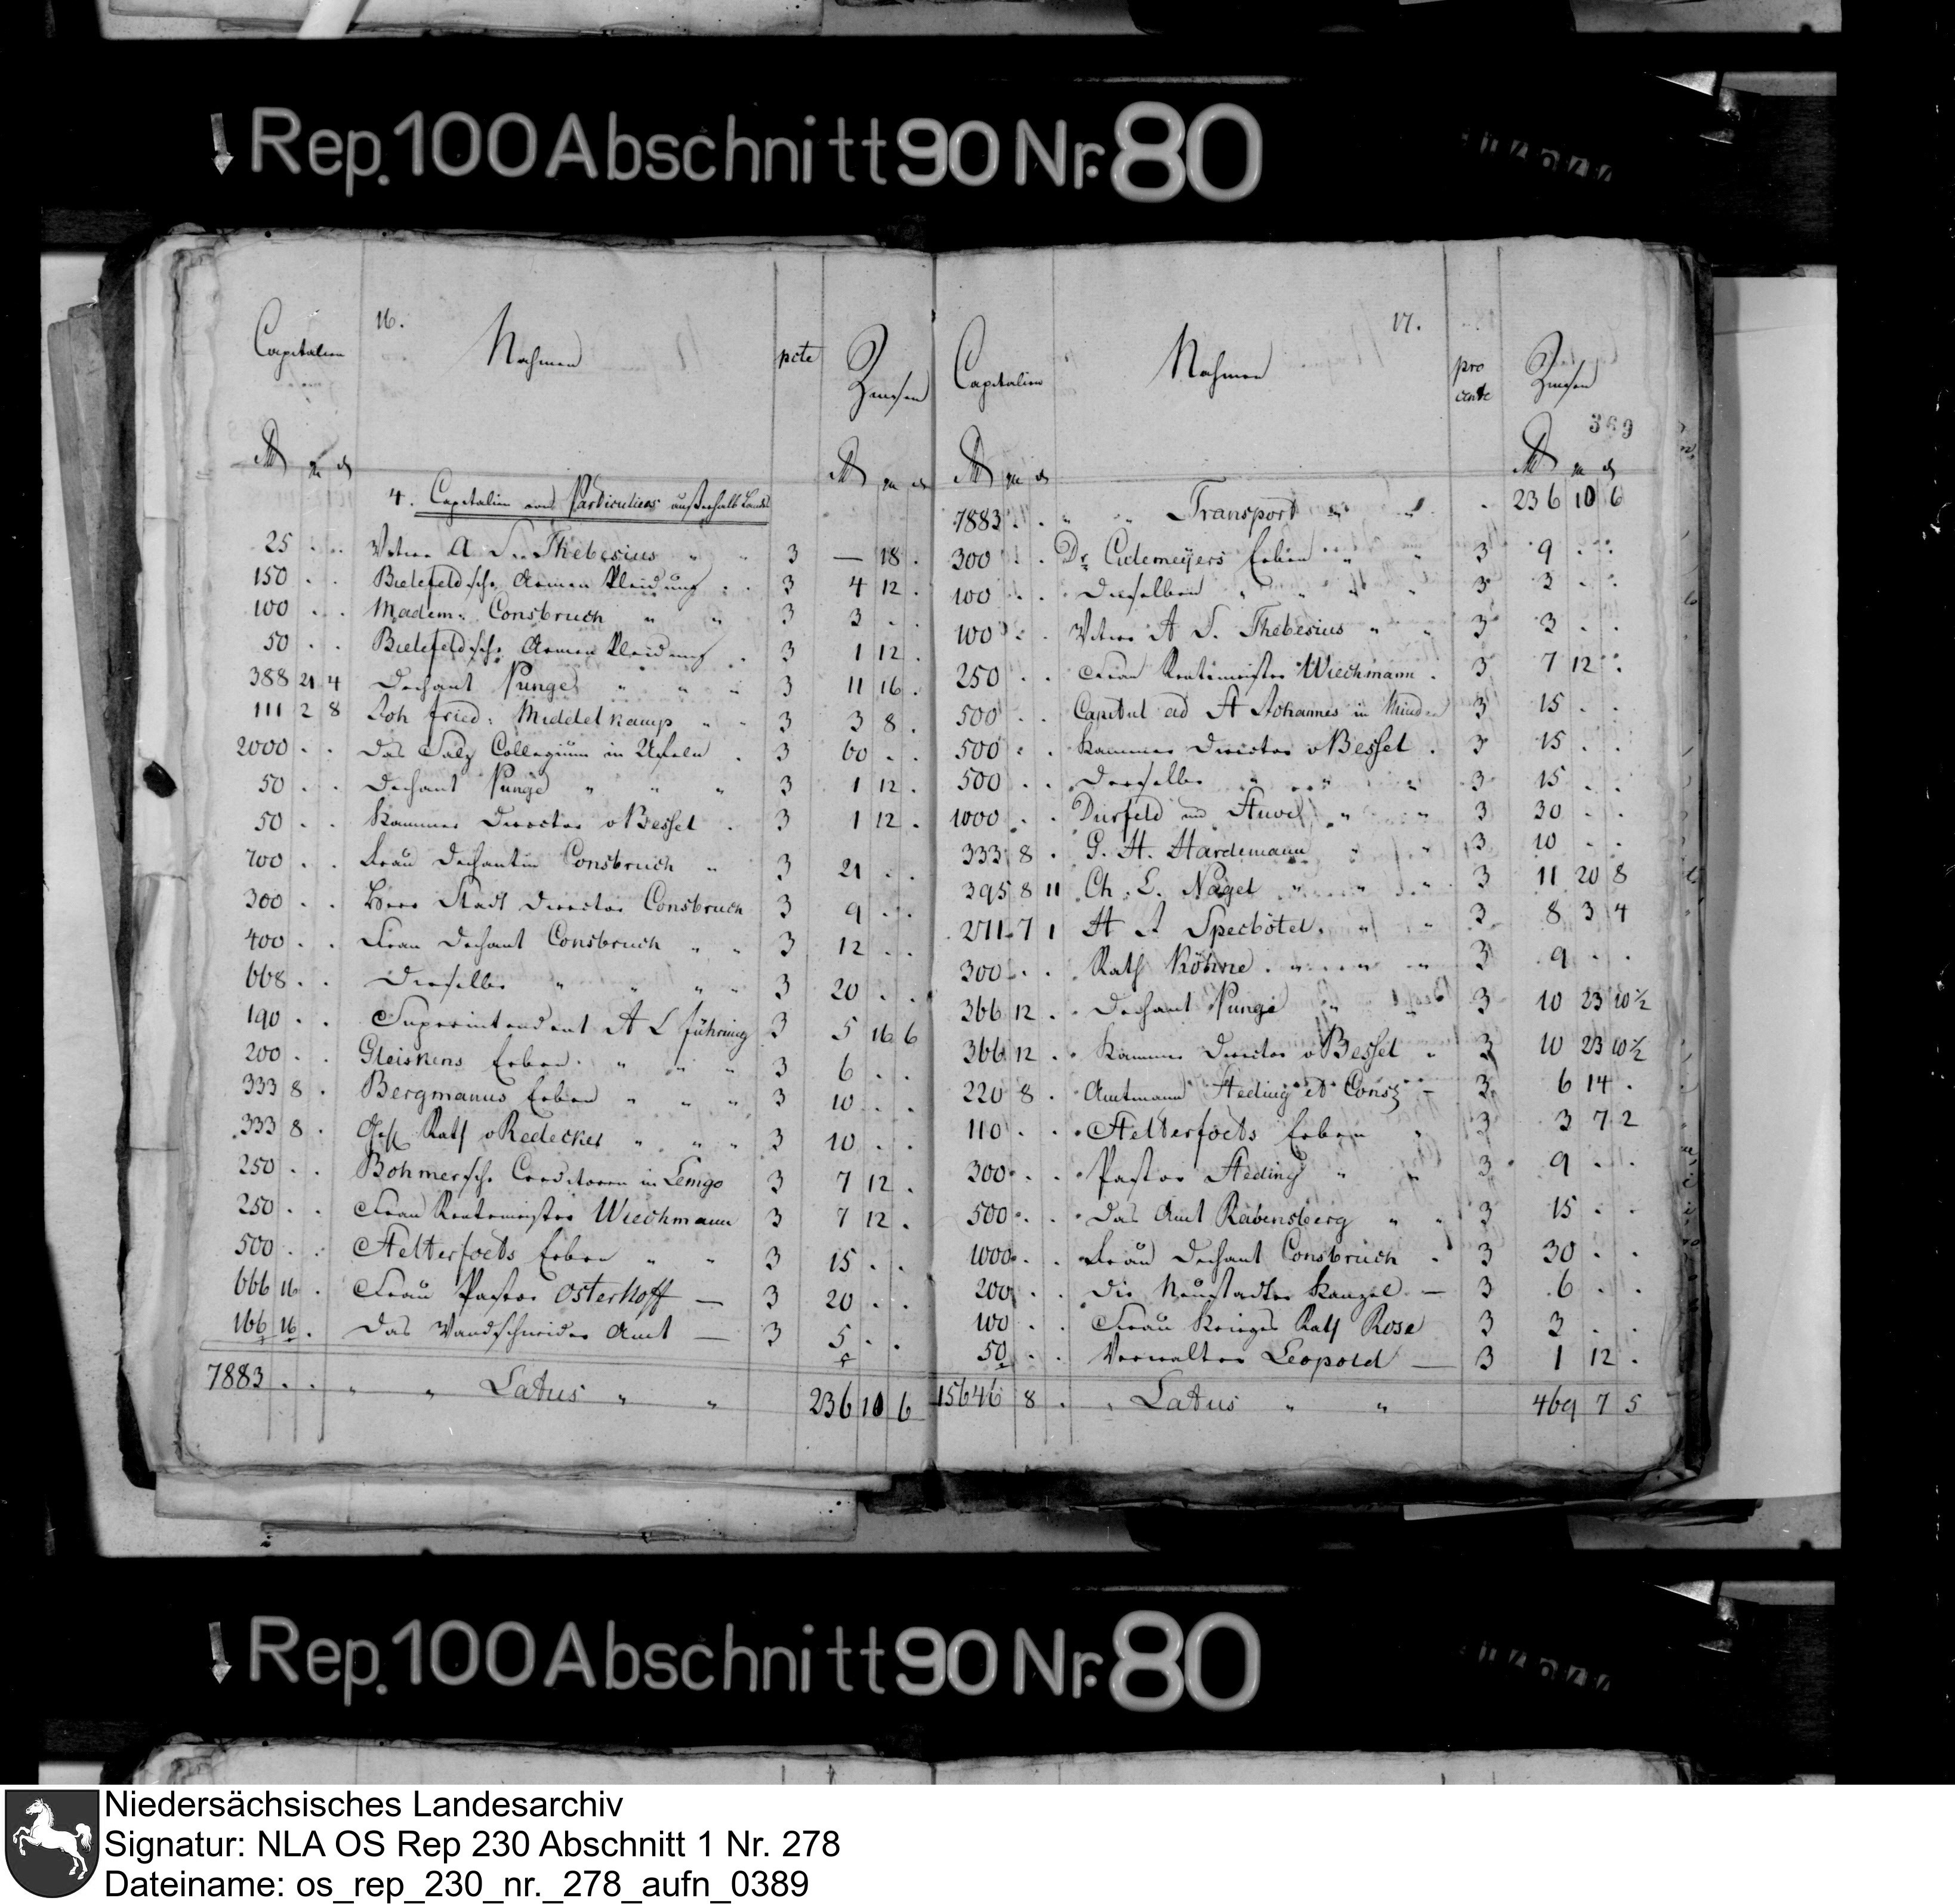 Rep. 100 Abschnitt 90 Nr. 80
16.
Capitalien Nahmen pcte Zinsen
4. Capitalien von Particuliers außerhalb Landes
25 . . Witwe A S. Thebesius " " 3 — 18 .
150 . . Bielefeldsche Armen Kleidung . . 3 4 12 .
100 . . Madem: Consbruch " " 3 3 . .
50 . . Bielefeldsche Armen Kleidung . 3 1 12 .
388 21 4 Dechant Punge " " " 3 11 16 .
111 2 8 Joh Fried: Middelkamp " " 3 3 8 .
2000 . . Das Salz Collegium in Ufeln . 3 60 . .
50 . . Dechant Punge " " " 3 1 12 .
50 . . Kammer Director v Bessel . 3 1 12 .
700 . . Frau Dechantin Consbruch " 3 21 . .
300 . . Herr Stadt Director Consbruch 3 9 . .
400 . . Frau Dechant Consbruch " " 3 12 . .
668 . . Dieselbe " " " " 3 20 . .
190 . . Superintendent A L Führing 3 5 16 6
200 . . Gleiskens Erben . " " " 3 6 . .
333 8 . Bergmanns Erben " " " 3 10 . .
333 8 . Geh Rath v Redecker " " " 3 10 . .
250 . . Bohmersche Creditoren in Lemgo 3 7 12 .
250 . . Frau Rentemeister Wiechmann 3 7 12 .
500 . . Helterfoets Erben " " 3 15 . .
666 16 . Frau Pastor Osterhoff — 3 20 . .
166 16 . Das Wandschneider Amt — 3 5 . .
7883 . . " " Latus " " 236 10 6
17.
Capitalien Nahmen pro cente Zinsen
369
7883 . . " " Transport " " . 236 10 6
300 . . Dr. Cidemeyers Erben " " 3 9 . .
100 . . Dieselben " " " " 3 3 . .
100 . . Witwe A S. Thebesius " " 3 3 . .
250 . . Frau Rentemeister Wiechmann . 3 7 12 .
500 . . Capitul ad St Johannes in Minden 3 15 . .
500 . . Kammer Director v Bessel . 3 15 . .
500 . . Derselbe " " " 3 15 . .
1000 . . Dürfeld und Stuve " " 3 30 . .
333 8 . G. H. Hardemann " " 3 10 . .
395 8 11 Ch. L. Nagel " " " 3 11 20 8
271 7 1 H A Specbötel . " " 3 8 3 4
300 . . Rath Köhne . " " " 3 9 . .
366 12 . Dechant Punge " " 3 10 23 10½
366 12 . Kammer Director v Bessel " 3 10 23 10½
220 8 . Amtmann Heding et Cons — 3 6 14 .
110 . . Helterfoets Erben " 3 3 7 2
300 . . Pastor Heding " " 3 9 . .
500 . . Das Amt Ravensberg " " 3 15 . .
1000 . . Frau Dechant Consbruch . 3 30 . .
200 . . Die Neustadter Kanzel — 3 6 . .
100 . . Frau Krieges Rath Rose 3 3 . .
50 . . Verwalter Leopold — 3 1 12 .
15646 8 . " Latus " " 469 7 5
Rep. 100 Abschnitt 90 Nr. 80
Niedersächsisches Landesarchiv
Signatur: NLA OS Rep 230 Abschnitt 1 Nr. 278
Dateiname: os_rep_230_nr._278_aufn_0389